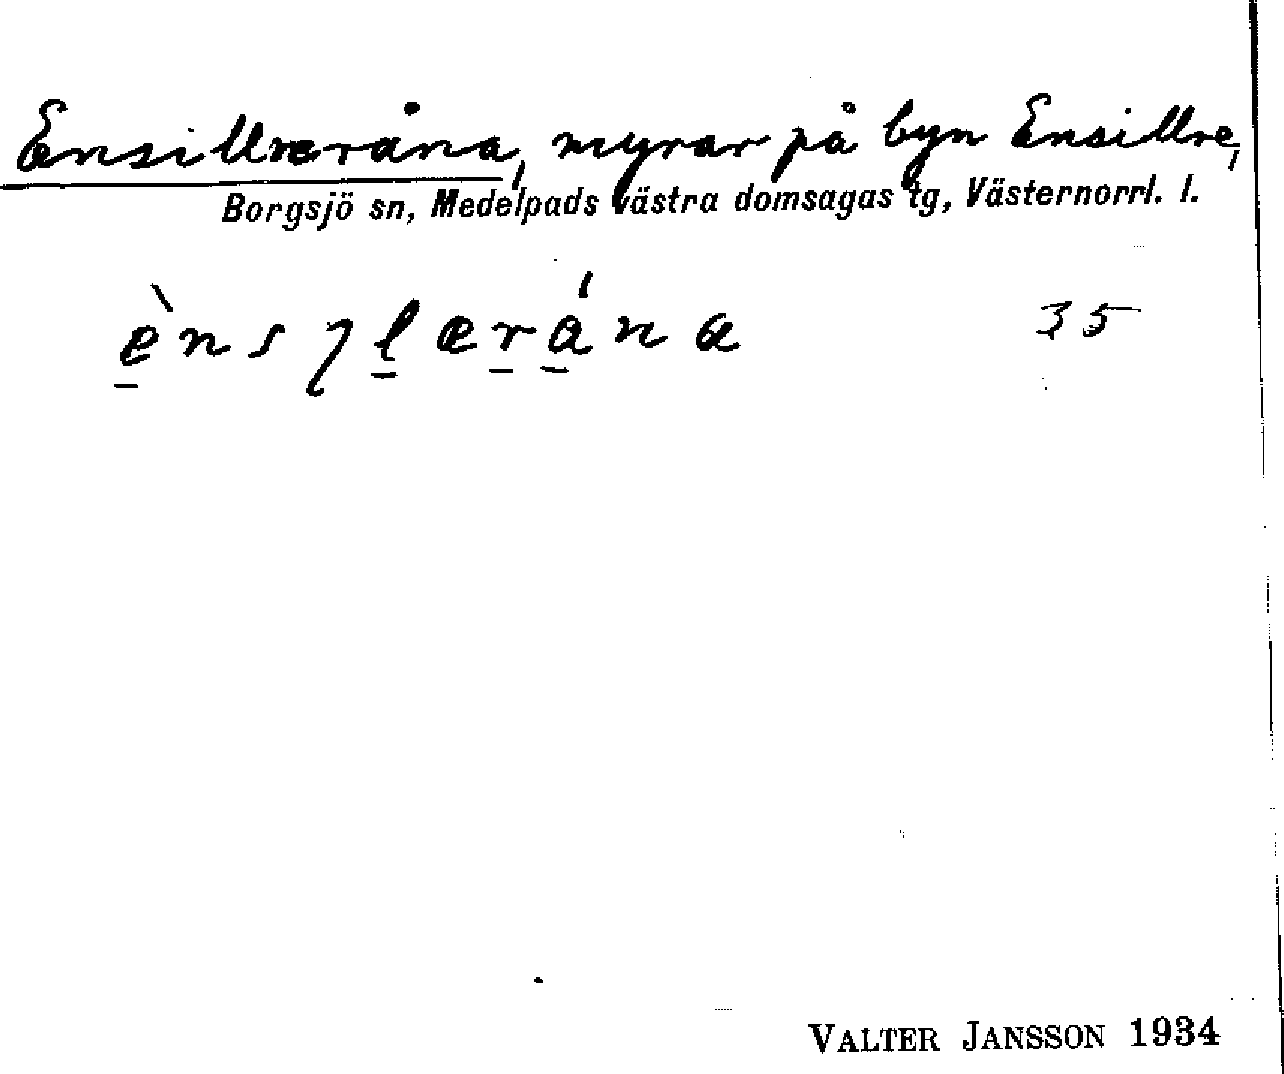 Ensillreråna, myrar på byn Ensillre,
Borgsjö sn, Medelpads västra domsagas tg, Västernorrl. l.
35
VALTER JANSSON 1934